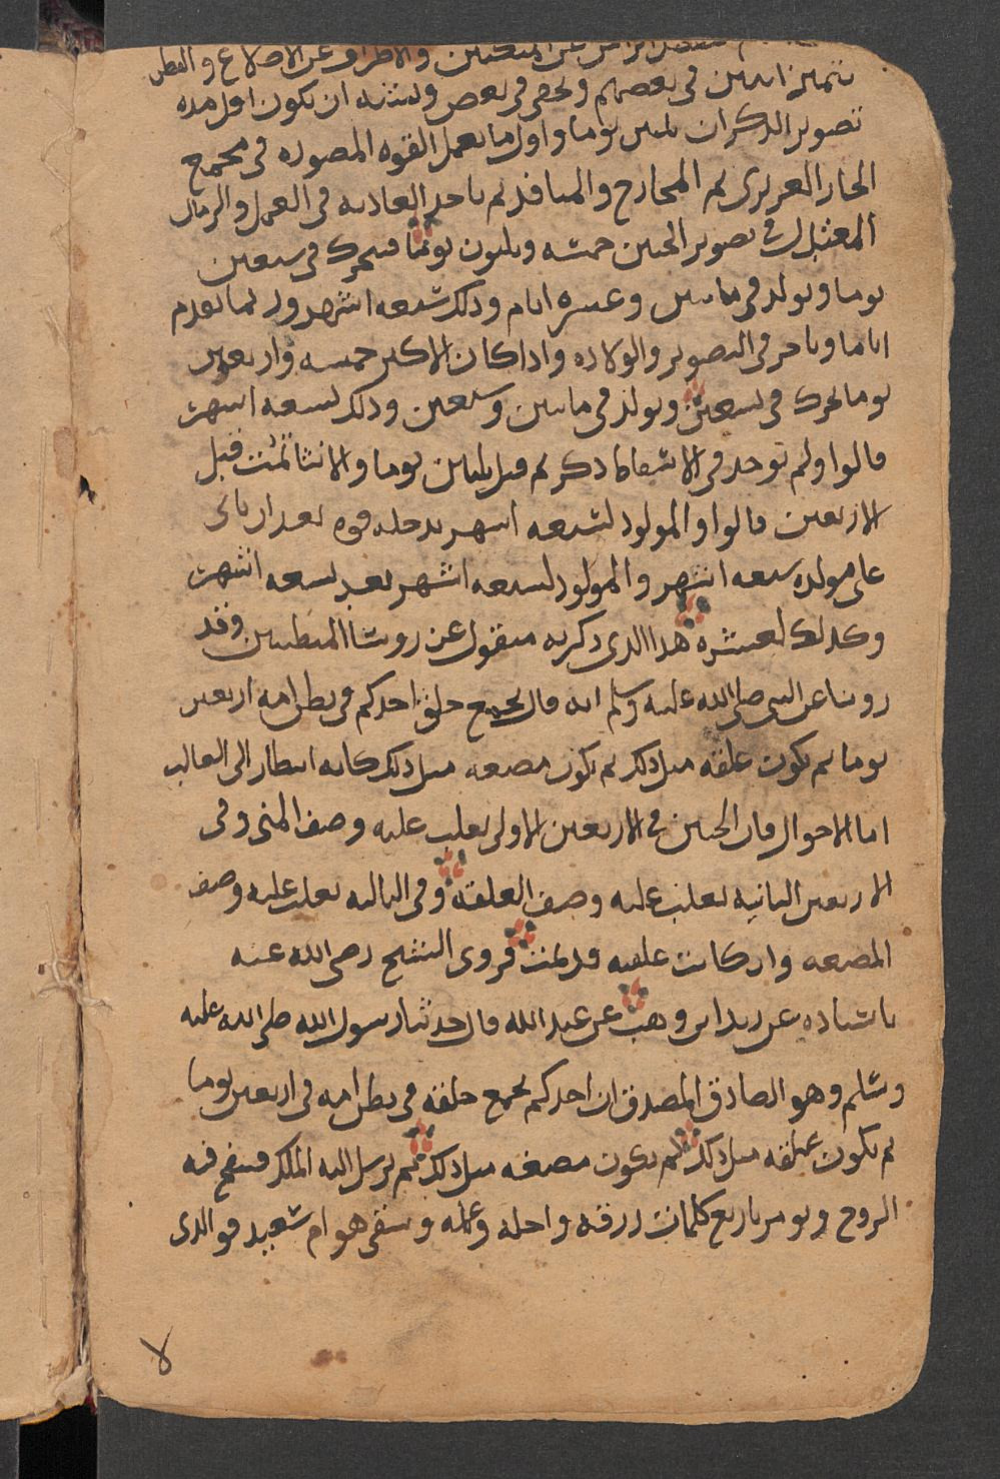 ينفصل الراس عن المنكبين والاطراف عن الاضلاع والبطن
تميزا يتبين في بعضهم ويخفى في بعض ويشبه ان يكون اقل مده
تصوير الذكران ثلثين يوما واول ما تعمل القوه المصوره في مجمع
الحار الغريزي ثم المخارج والمنافذ ثم تاخذ العاديه في العمل والزمان
المعتدل في تصوير الجنين خمسه وثلثون يوما فيتحرك في سبعين
يوما ويولد في مايتين وعشره ايام وذلك سبعه اشهر وربما تقدم
اياما وتاخر في التصوير والولاده واذا كان الاكثر خمسه واربعين
يوما تحرك في تسعين ويولد في مايتين وسبعين وذلك تسعه اشهر
قالوا ولم توجد في الاسقاط ذكر تم قبل ثلثين يوما ولا انثا تمت قبل
الاربعين قالوا والمولود لسبعه اشهر تدخله قوه بعد ان ياتى
على مولده سبعه اشهر والمولود لتسعه اشهر بعد تسعه اشهر
وكذلك لعشره هذا الذي ذكرته منقول عن روسا المتطببين وقد
روينا عن النبي صلى الله عليه وسلم انه قال يجمع خلق احدكم في بطن امه اربعين
يوما ثم يكون علقه مثل ذلك ثم يكون مضغه مثل ذلك كانه اشار الى الغالب
اما الاحوال فان الجنين في الاربعين الاولى يغلب عليه وصف المنى وفي
الاربعين الثانيه يغلب عليه وصف العلقه وفي الثالثه يغلب عليه وصف
المضغه وان كانت خلقته قد تمت فروى الشيخ رضى الله عنه
باسناده عن زيد ابن وهب عن عبد الله قال حدثنا رسول الله صلى الله عليه
وسلم وهو الصادق المصدق ان احدكم يجمع خلقه في بطن امه في اربعين يوما
ثم يكون علقه مثل ذلك ثم يكون مضغه مثل ذلك ثم يرسل اليه الملك فينفخ فيه
الروح ويومر باربع كلمات رزقه واجله وعمله وشقي هو ام سعيد فو الذي